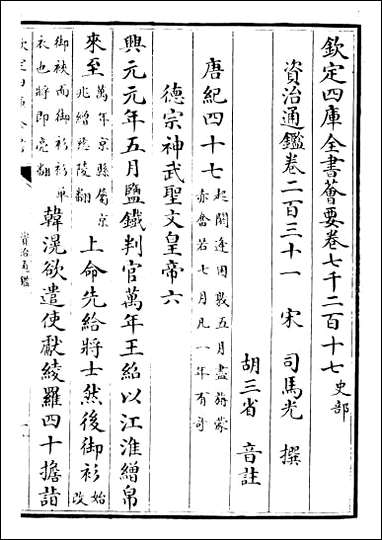 欽定四庫全書薈要卷七千二百十七 史部
資治通鑑卷二百三十一 宋 司馬光 撰
胡三省 音註
唐紀四十七 起閼逢困敦五月盡旃蒙
赤奮若七月凡一年有奇
德宗神武聖文皇帝六
興元元年五月鹽鐵判官萬年王紹以江淮繒帛
來至 萬年京縣屬京
兆繒慈陵翻 上命先給將士然後御衫 始
改
御裌而御衫衫單
衣也將即亮翻 韓滉欲遣使獻綾羅四十擔詣
資治通鑑